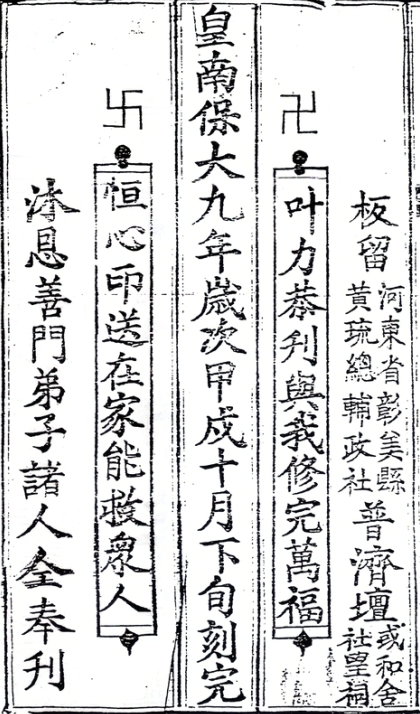 板留
河東省彰美縣
黄琉總輔政社
普濟壇
或和舍
社皇祠
卍
叶力恭刊與我修完萬福
皇南保大九年歲次甲戍十月下旬刻完
卐
恒心印送在家能救衆人
沐恩善門弟子諸人仝奉刊